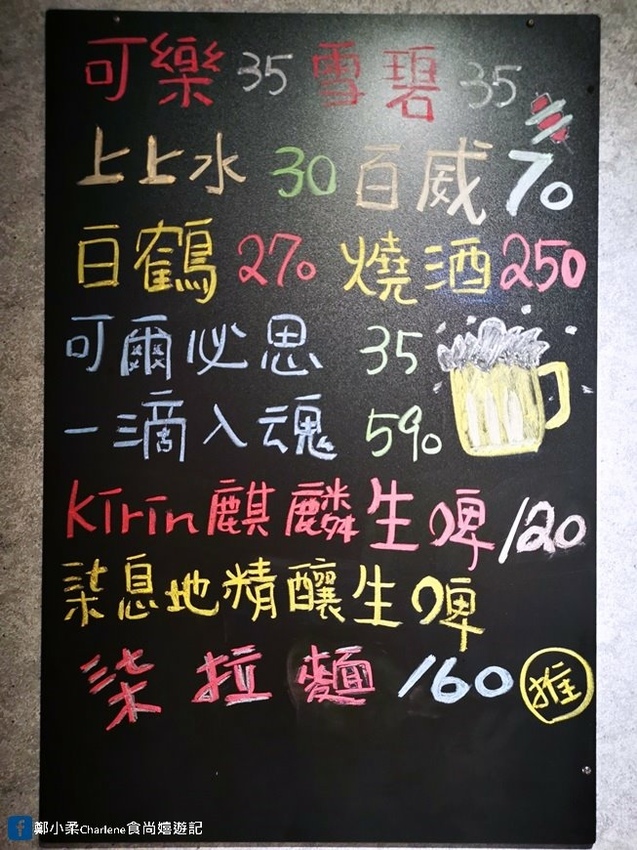 可樂 35 雪碧 35
上上水 30 百威 70
白鶴 270 燒酒 250
可爾必思 35
一滴入魂 590
Kirin麒麟生啤 120
柒息地精釀生啤
柒拉麵 160 推
鄭小柔Charlene食尚嬉遊記